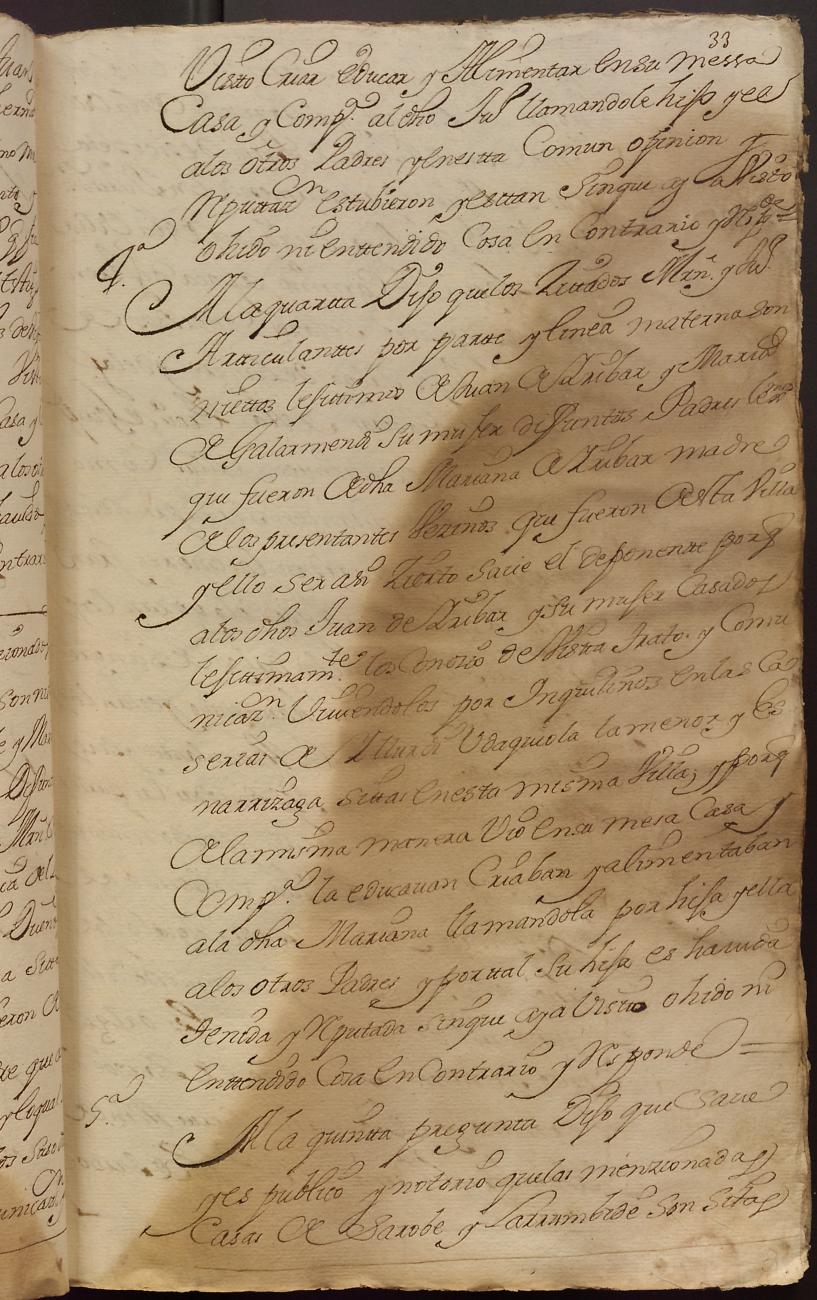 33
Visto Criar educar y Alimentar en su messa
Casa y Comp.ª al dho Juº llamandole hijo y el
a los otros Padres y en esta Comun opinion y
Reputaz.n estubieron y estan sin que aya Visto
ohido ni enttendido Cosa en Contrario y Resp.de =
4.ª
A la quartta Dijo que los Zitados Mrn. y Juº
Articulanttes por partte y linea materna son
niettos lesitimos de Juan de Zubar y Maria
de Galarmendi su mujer difuntos Padres
que fueron de dha Mariana de Zubar madre
de los presentantes Vezinos que fueron de esta Villa
y ello ser asi Zierto save el deponente porq
a los dhos Juan de Zubar y su mujer Casados
lesitimam.te los Conozio de Vista Trato y Comu
nicaz.n Viviendolos por Inquilinos en las Ca
serias de Udaquiola la menor y
narrizaga sittas en esta misma Villa; y porq
de la misma manera Vio en su mesa Casa y
Comp.ª la educavan Criaban y alimentaban
a la dha Mariana llamandola por hija y ella
a los otros Padres y por tal su hija es havida
tenida y Reputada sin que aya Visto ohido ni
enttendido Cosa en Contrario y Responde =
5.ª
A la quintta pregunta Dijo que Save
y es publico y notorio que las menzionadas
Casas de Sarobe y Larrumbide son sitas